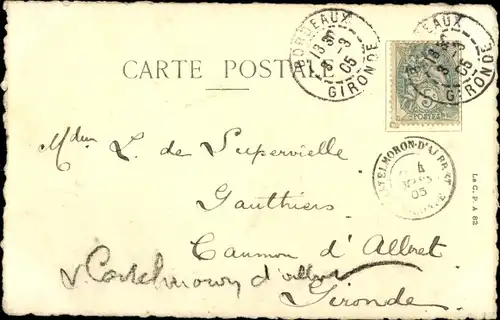 BORDEAUX
13 3
3-3
05
GIRONDE
BORDEAUX
3-3
05
GIRONDE
CARTE POSTALE
5
POSTES
CASTELMORON-D'ALBRET
4
MARS
05
GIRONDE
La C. P. A 82
L. de Supervielle
Gauthiers
Caumon d'Albret
Castelmoron d'albret
Gironde